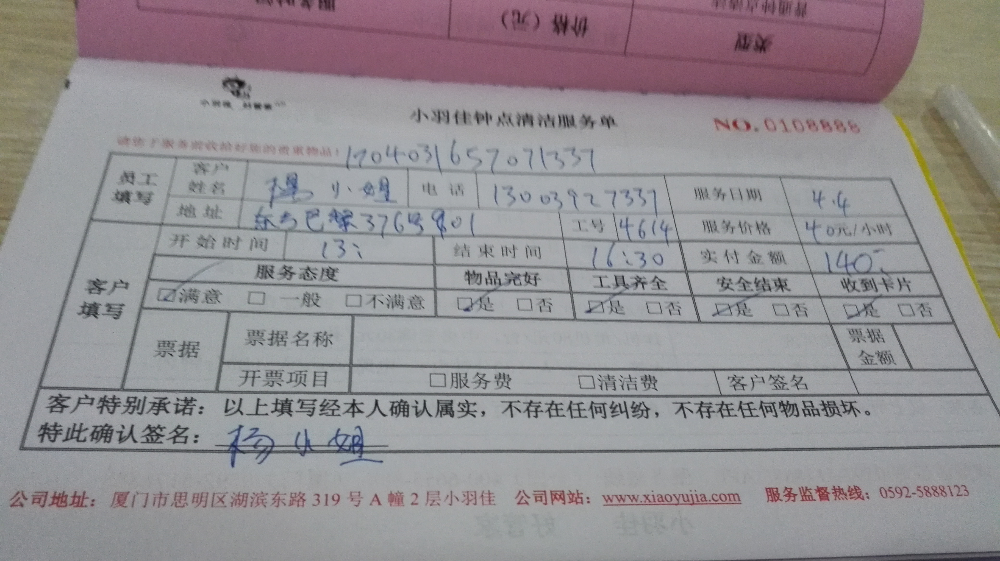 服务时间
价格（元）
普通钟点清洁
类型
小羽佳 好管家
小羽佳钟点清洁服务单
NO. 0108888
请您于服务前收拾好您的贵重物品！
1704031657071337
员工填写 客户姓名 杨小姐 电话 13003927337 服务日期 4.4
地址 376号 901 工号 4614 服务价格 40元/小时
开始时间 13: 结束时间 16:30 实付金额 140
客户填写 服务态度 物品完好 工具齐全 安全结束 收到卡片
☑满意 □ 一般 □不满意 ☑是 □否 ☑是 □否 ☑是 □否 ☑是 □否
票据 票据名称 票据金额
开票项目 □服务费 □清洁费 客户签名
客户特别承诺：以上填写经本人确认属实，不存在任何纠纷，不存在任何物品损坏。
特此确认签名：杨小姐
公司地址：厦门市思明区湖滨东路 319 号 A 幢 2 层小羽佳 公司网站：www.xiaoyujia.com 服务监督热线：0592-5888123
小羽佳 好管家